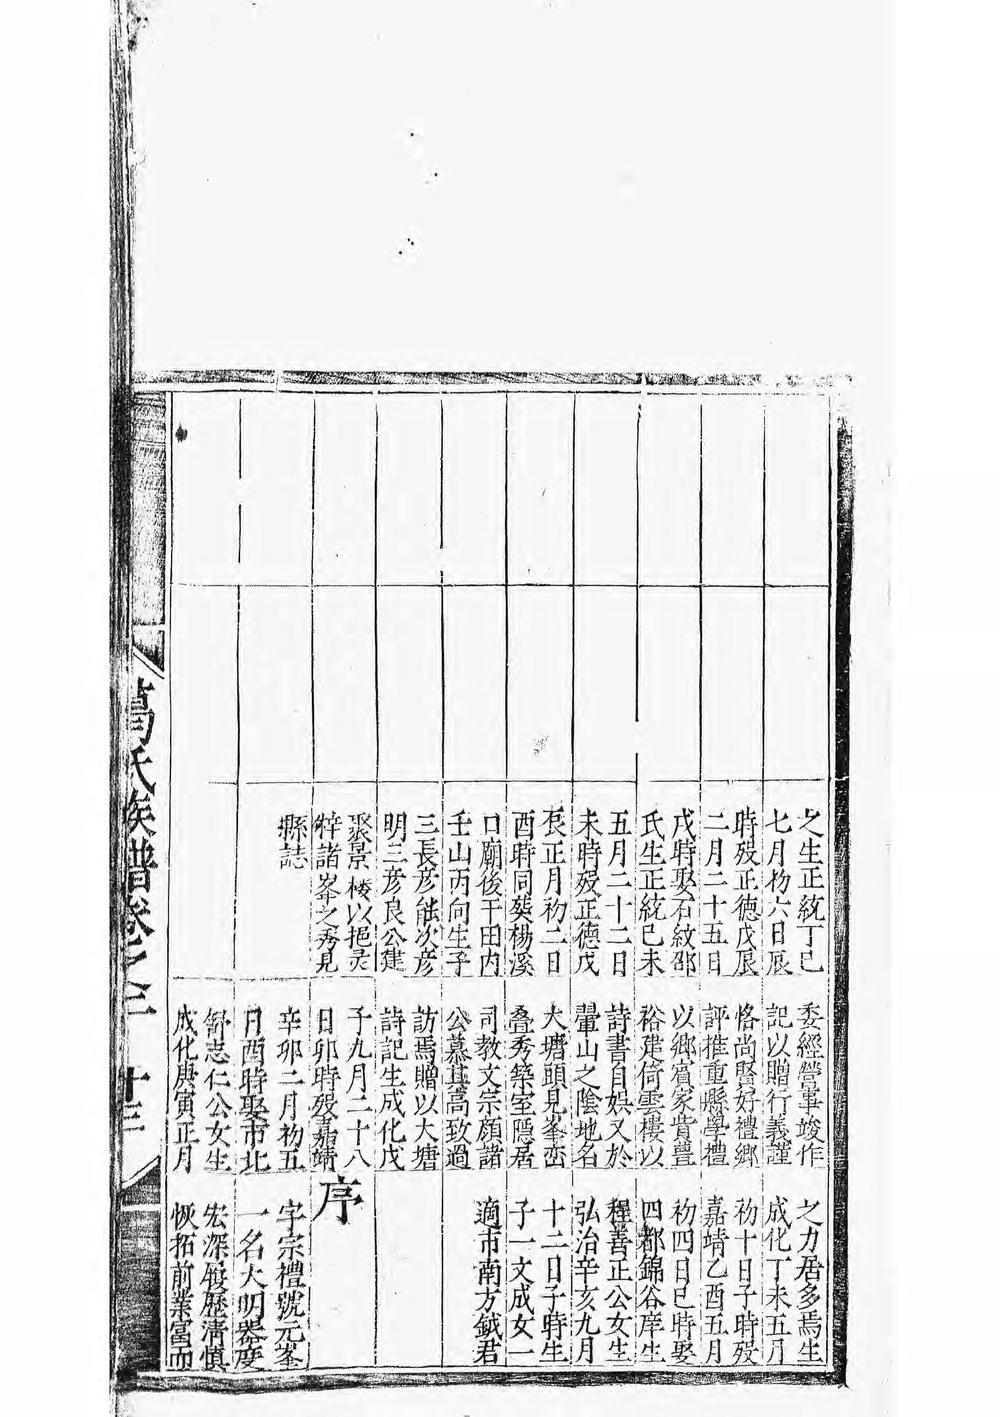 之生正統丁巳
七月初六日辰
時歿正德戊辰
二月二十五日
戌時娶石紋邵
氏生正統己未
五月二十二日
未時歿正德戊
辰正月初二日
酉時同葵楊溪
口廟後干田內
壬山丙向生子
三長彦能次彦
明三彦良公建
聚景樓以挹灵
梓諸峯之秀見
縣誌
委經營事竣作
記以贈行義謹
恪尚賢好禮鄉
評推重縣學禮
以鄉賓家貲豐
裕建倚雲樓以
詩書自娛又於
輋山之陰地名
大塘頭見峯巒
叠秀築室隱居
司教文宗顏諸
公慕其高致過
訪焉贈以大塘
詩記生成化戊
子九月二十八
日卯時歿嘉靖
辛卯二月初五
日酉時娶市北
舒志仁公女生
成化庚寅正月
之力居多焉生
成化丁未五月
初十日子時歿
嘉靖乙酉五月
初四日巳時娶
四都錦谷庠生
程善正公女生
弘治辛亥九月
十二日子時生
子一文成女一
適市南方鉞君
序
字宗禮號元峯
一名大明器度
宏深履歷清慎
恢拓前業富而
葛氏族譜卷之二 十三